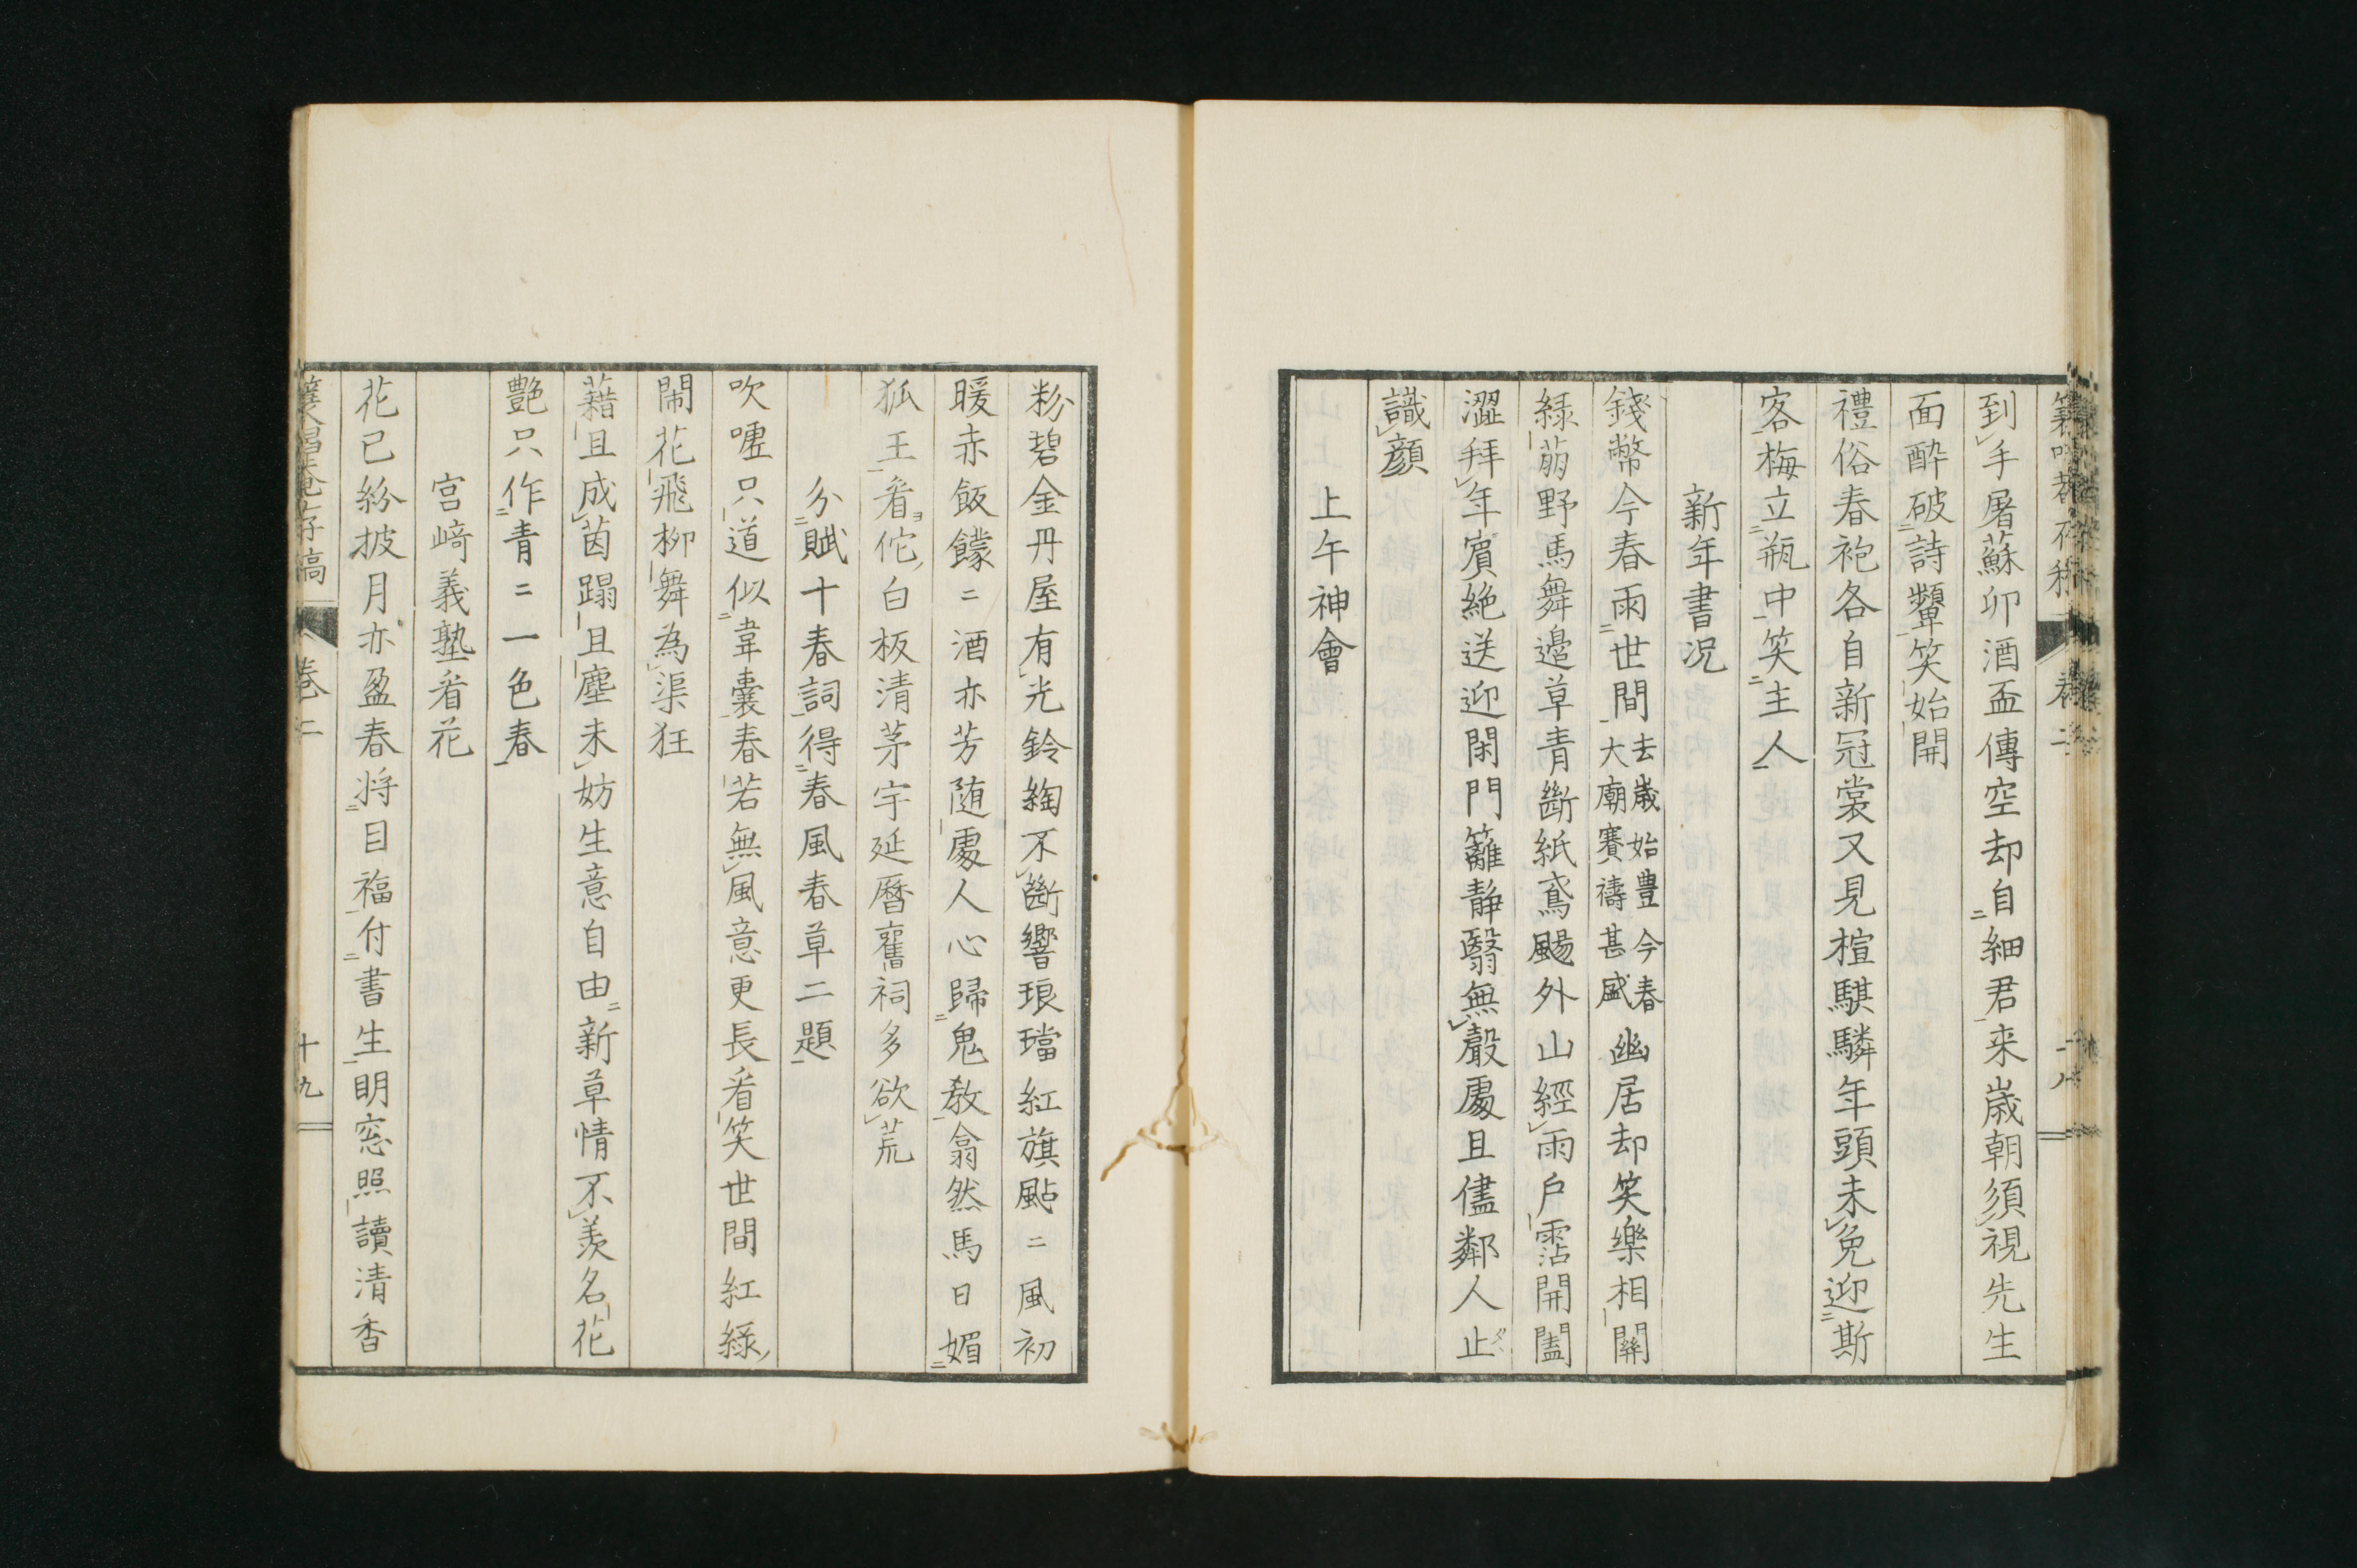 到手屠蘇卯酒盃傳空却自細君来歳朝須視先生
面酔破詩顰笑始開
禮俗春袍各自新冠裳又見楦騏驎年頭未免迎斯
客梅立瓶中笑主人
新年書況
錢幣今春雨世間去歳始豊今春大廟賽禱甚盛幽居却笑樂相關
緑萠野馬舞邉草青斷紙鳶颺外山經雨戸霑開闔
澀拜年賓絶送迎閑門籬静翳無聲處且儘鄰人止
識顔
上午神會
粉碧金丹屋有光鈴綯不斷響琅璫紅旗颭〻風初
暖赤飯饛〻酒亦芳随處人心歸鬼教翕然馬日媚
狐王看佗白板清茅宇延曆舊祠多欲荒
分賦十春詞得春風春草二題
吹嘘只道似韋囊春若無風意更長看笑世間紅緑
閙花飛柳舞為渠狂
藉且成茵蹋且塵未妨生意自由新草情不羨名花
艶只作青〻一色春
宮﨑義塾看花
花已紛披月亦盈春将目福付書生明窓照讀清香
卷二
十九